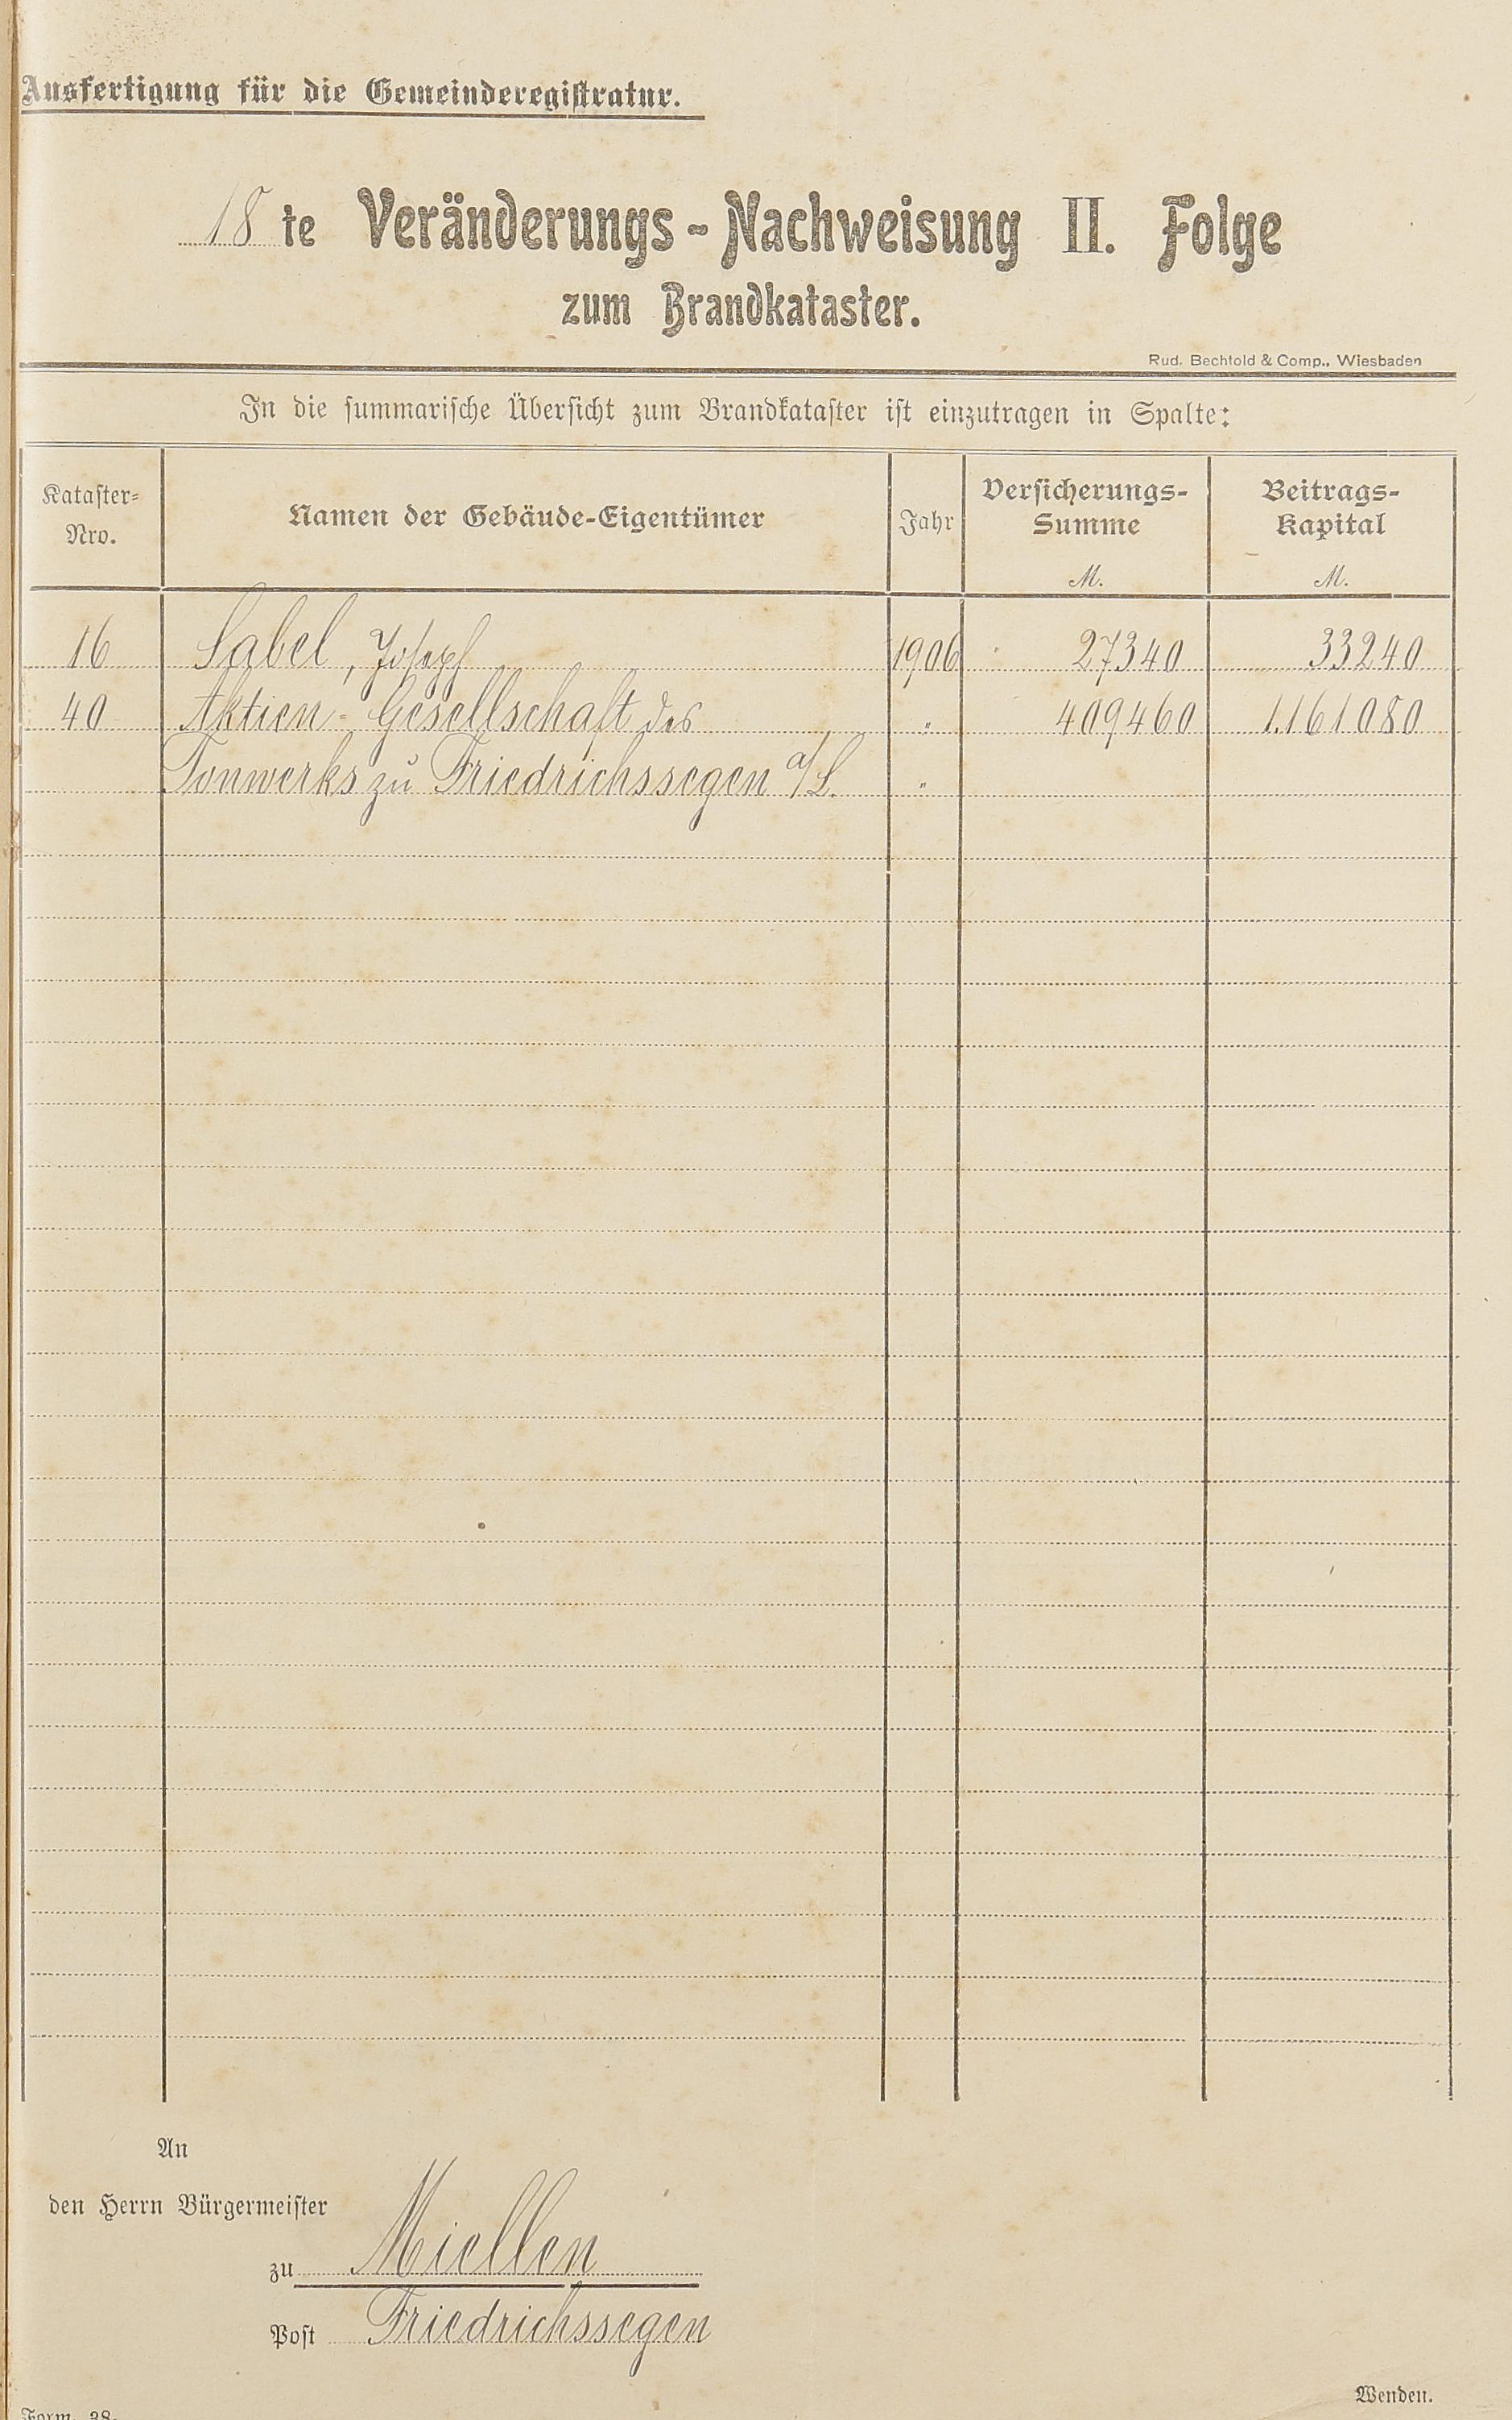 Ausfertigung für die Gemeinderegistratur.
18 te Veränderungs-Nachweisung II. Folge
zum Brandkataster.
Rud. Bechtold & Comp., Wiesbaden
In die summarische Übersicht zum Brandkataster ist einzutragen in Spalte:
Kataster-Nro. Namen der Gebäude-Eigentümer Jahr Versicherungs-Summe M. Beitrags-Kapital M.
16 Sabel, Joseph 1906 27340 33240
40 Aktien-Gesellschaft des " 409460 1.161080
Tonwerks zu Friedrichssegen a/L. "
An
den Herrn Bürgermeister
zu Miellen
Post Friedrichssegen
Wenden.
Form. 38.